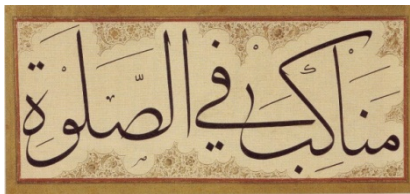 مَنَاكِبَ فِي الصَّلٰوةِ